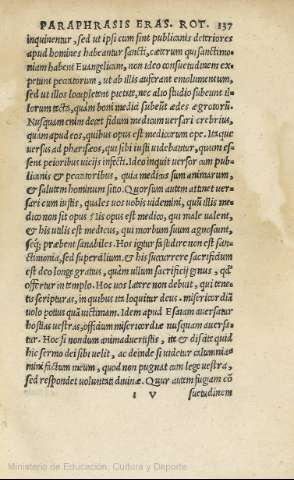 PARAPHRASIS ERAS. ROT. 137
inquinentur, sed ut ipsi cum sint publicanis deteriores
apud homines habeantur sancti, cæterum qui sanctimo-
niam habent Euangelicam, non ideo consuetudinem ex-
petunt peccatorum, ut ab illis auferant emolumentum,
sed ut illos locupletent pietate, nec alio studio subeunt il
lorum tecta, quàm boni medici subeūt ædes ægrotorū.
Nusquam enim decet fidum medicum uersari crebrius,
quàm apud eos, quibus opus est medicorum ope. Itaque
uersus ad pharisæos, qui sibi iusti uidebantur, quum es-
sent peioribus uicijs infecti. Ideo inquit uersor cum pub-
licanis & peccatoribus, quia medicus sum animarum,
& salutem hominum sitio. Quorsum autem attinet uer-
sari cum iustis, quales uos uobis uidemini, quū illis me-
dico non sit opus? Iis opus est medico, qui male ualent,
& his utilis est medicus, qui morbum suum agnoscunt,
seq́; præbent sanabiles. Hos igitur fastidire non est san-
ctimonia, sed supercilium. & his succurrere sacrificium
est deo longe gratius, quàm ullum sacrificij genus, qđ
offertur in templo. Hoc uos latere non debuit, qui tene-
tis scripturas, in quibus ita loquitur deus: misericordiā
uolo potius quàm uictimam. Idem apud Esaiam auersatur
hostias uestras, officium misericordiæ nusquam auersa-
tur. Hoc si nondum animaduertistis, ite & discite quid
hic sermo dei sibi uelit, ac deinde si uidetur calumnia-
mini factum meum, quod non pugnat cum lege uestra,
sed respondet uoluntati diuinæ. Quur autem fugiam cō
I V suetudinem
Ministerio de Educación, Cultura y Deporte